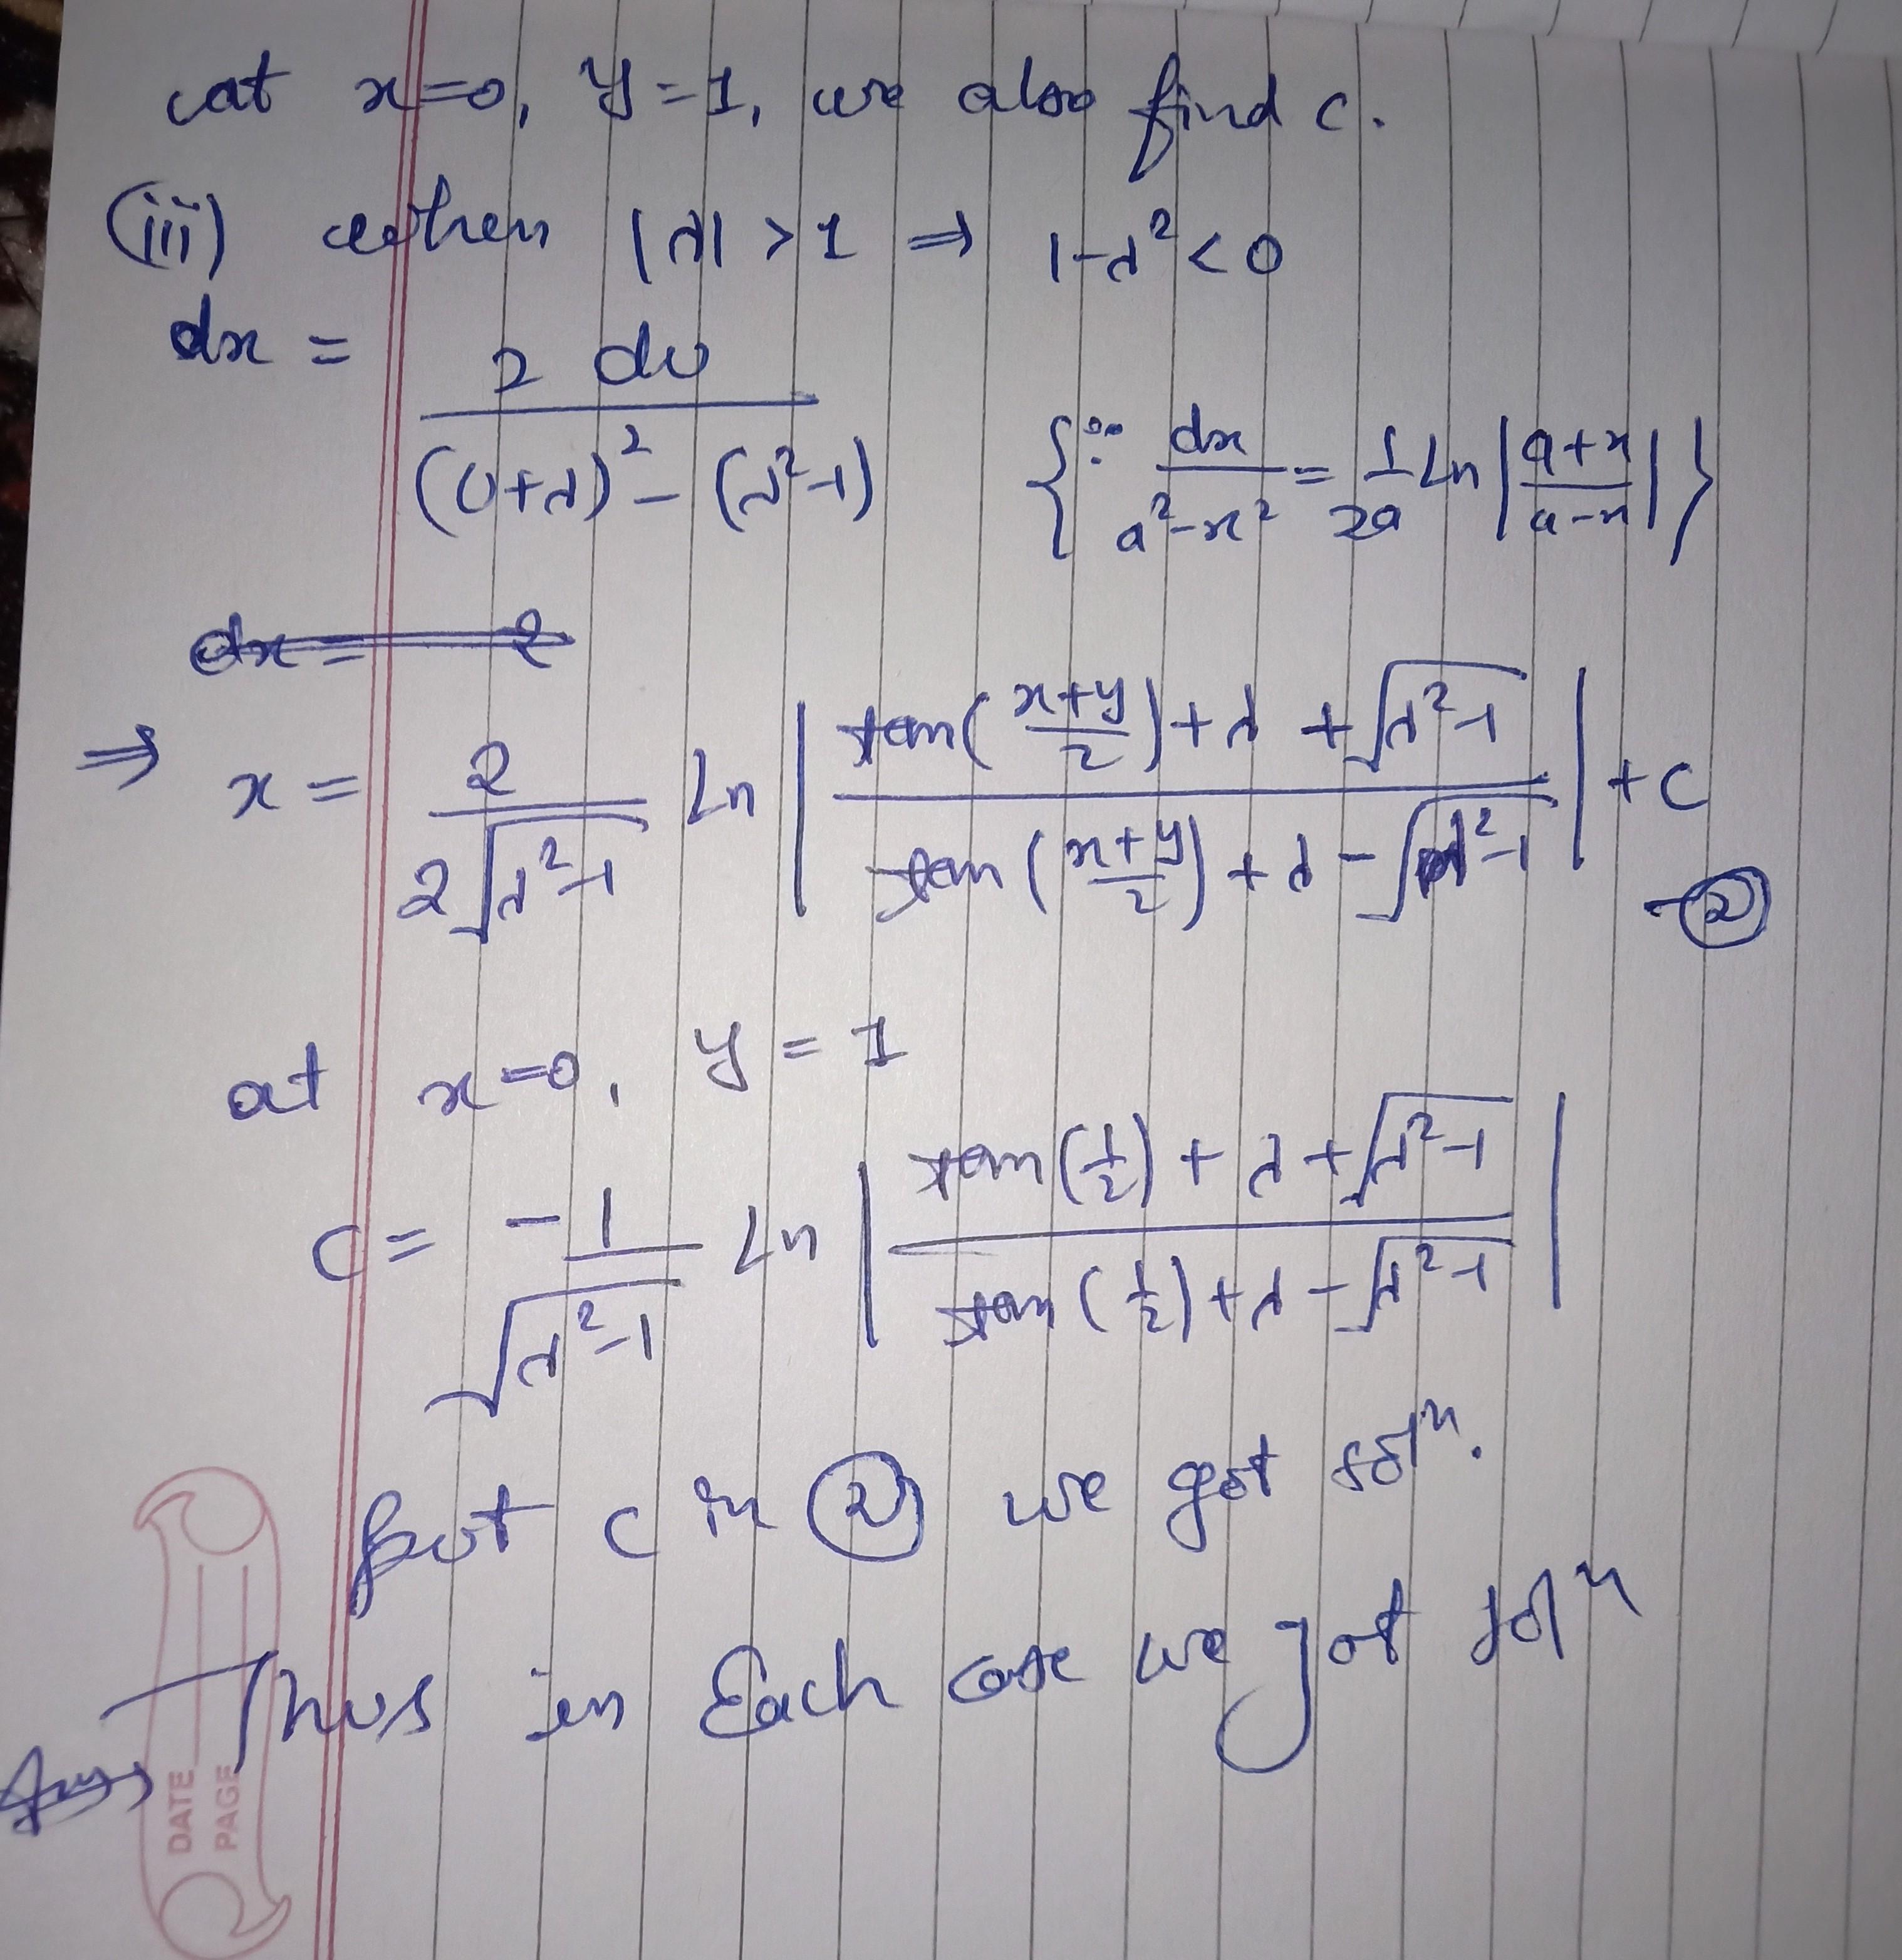 at x=0, y=1, we also find c.
(iii) when |λ| > 1 ⇒ 1-λ² < 0
dx = 2 dv / ((v+λ)² - (λ²-1)) {∵ dx/(a²-x²) = 1/2a Ln |(a+x)/(a-x)|}
⇒ x = 2/(2√(λ²-1)) Ln | (tan((x+y)/2) + λ + √(λ²-1)) / (tan((x+y)/2) + λ - √(λ²-1)) | + C -②
at x=0, y = 1
C = -1/√(λ²-1) Ln | (tan(1/2) + λ + √(λ²-1)) / (tan(1/2) + λ - √(λ²-1)) |
put c in ② we got solⁿ.
Thus in Each case we got solⁿ
Ans
DATE
PAGE